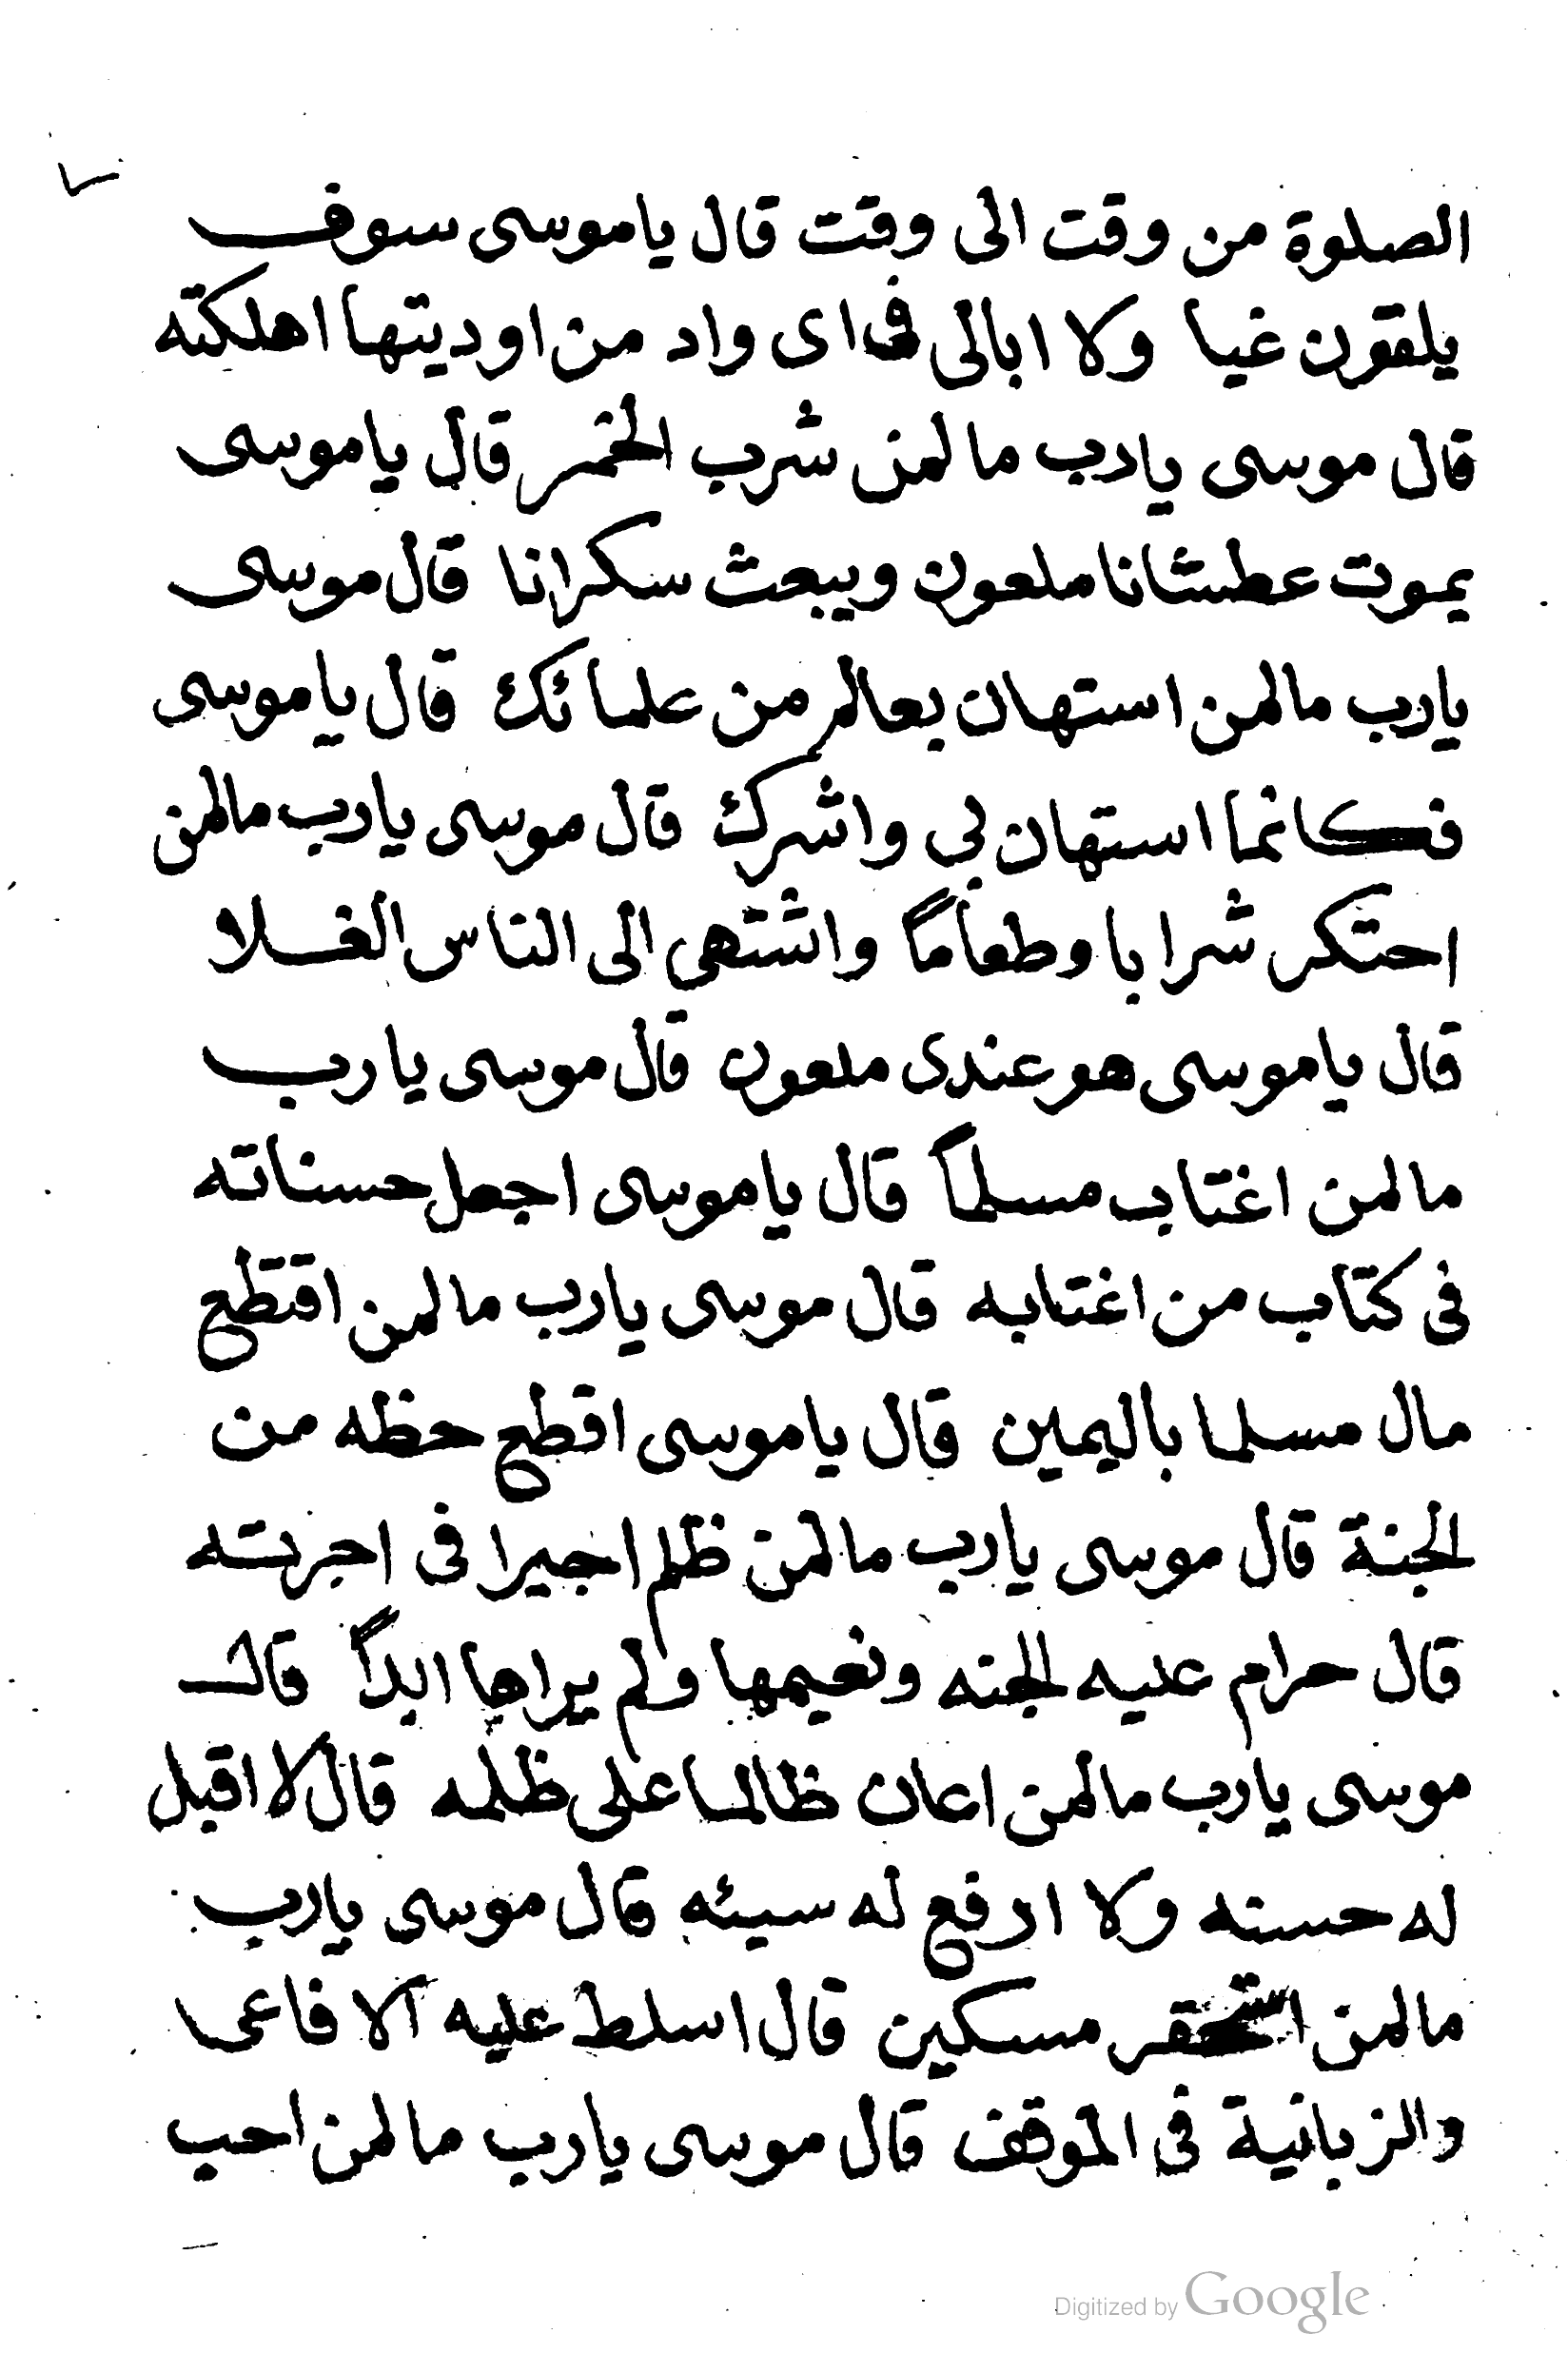 الصلوة من وقت الى وقت قال ياموسى سوف
يلقون غيا ولا ابالى فى اى واد من اوديتها اهلكته
قال موسى يارب مالمن شرب الخمر قال ياموسى
يموت عطشانا ملعون ويبعث سكرانا قال موسى
يارب مالمن استهان بعالم من علمائك قال ياموسى
فكانما استهان بي واشرك قال موسى يارب مالمن
احتكر شرابا وطعاماً واشتهى الى الناس الغلا
قال ياموسى هو عندى ملعون قال موسى يارب
مالمن اغتاب مسلماً قال ياموسى اجعل حسناته
فى كتاب من اغتابه قال موسى يارب مالمن اقتطع
مال مسلما باليمين قال ياموسى اقطع حظه من
الجنة قال موسى يارب مالمن ظلم اجيرا فى اجرته
قال حرام عليه الجنه ونعيمها ولم يراها ابداً قال
موسى يارب مالمن اعان ظالما على ظلمه قال لا اقبل
له حسنه ولا ارفع له سيئه قال موسى يارب
مالمن استحقر مسكين قال اسلط عليه الافاعى
والزبانية فى الموقف قال موسى يارب مالمن احب
Digitized by Google